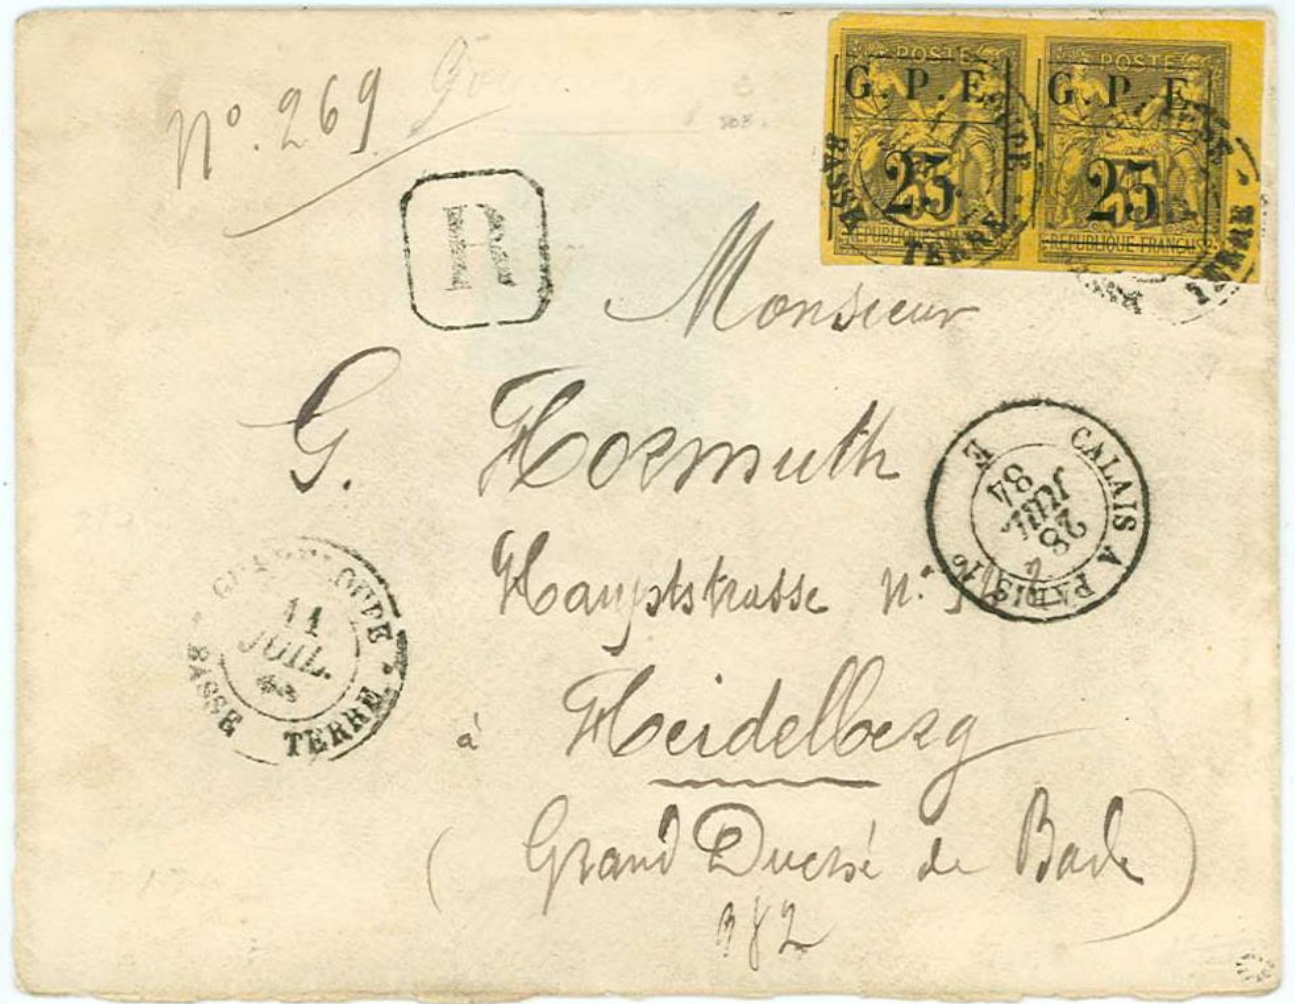 No. 269
803.
R
POSTE
G.P.E
25
REPUBLIQUE FRANÇAISE
POSTE
G.P.E
25
REPUBLIQUE FRANÇAISE
BASSE TERRE
BASSE TERRE
Monsieur
G. Hormuth
Hauptstrasse n:
à Heidelberg
(Grand Duché de Bade)
382
CALAIS A PARIS 1o
E
28
JUIL
84
GUADELOUPE
11
JUIL.
BASSE TERRE